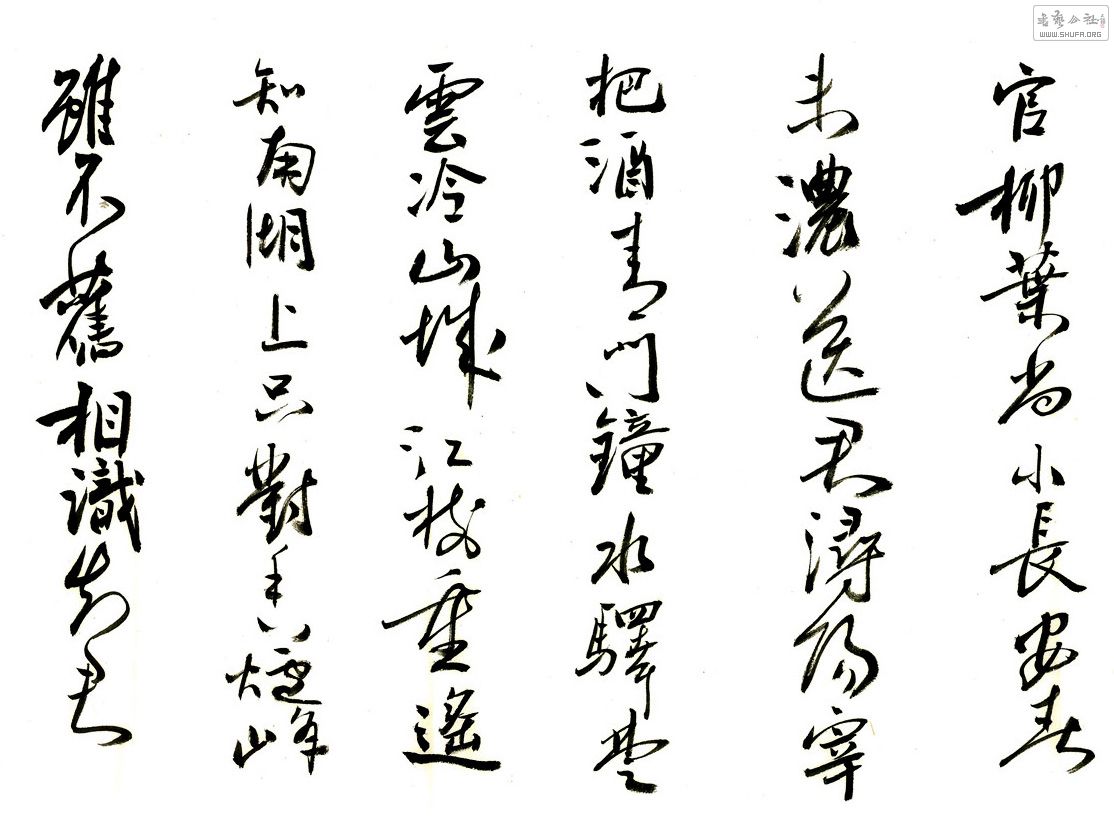 官柳葉尚小長安春
未濃送君潯陽宰
把酒青門鐘水驛楚
雲冷山城江樹重遙
知南湖上只對香爐峰
雖不舊相識知君
书艺公社
WWW.SHUFA.ORG